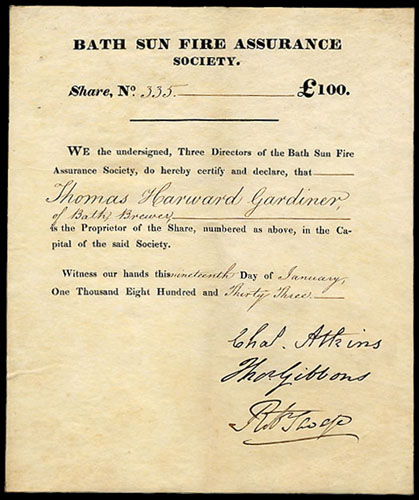 BATH SUN FIRE ASSURANCE
SOCIETY.
Share, No. 335. £100.
WE the undersigned, Three Directors of the Bath Sun Fire
Assurance Society, do hereby certify and declare, that
Thomas Harward Gardiner,
of Bath, Brewer
is the Proprietor of the Share, numbered as above, in the Ca-
pital of the said Society.
Witness our hands this nineteenth Day of January,
One Thousand Eight Hundred and Thirty Three.
Chas. Atkins
Thos Gibbons